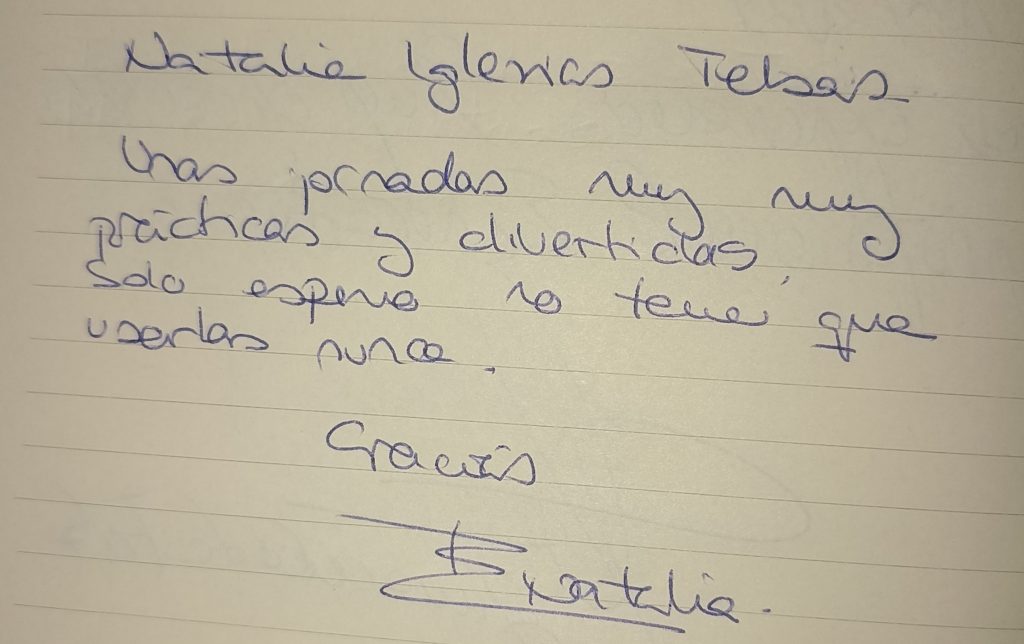 Natalia Iglesias Tebas
Unas jornadas muy muy
prácticas y divertidas,
solo espero no tener que
usarlas nunca.
Gracias
Natalia.